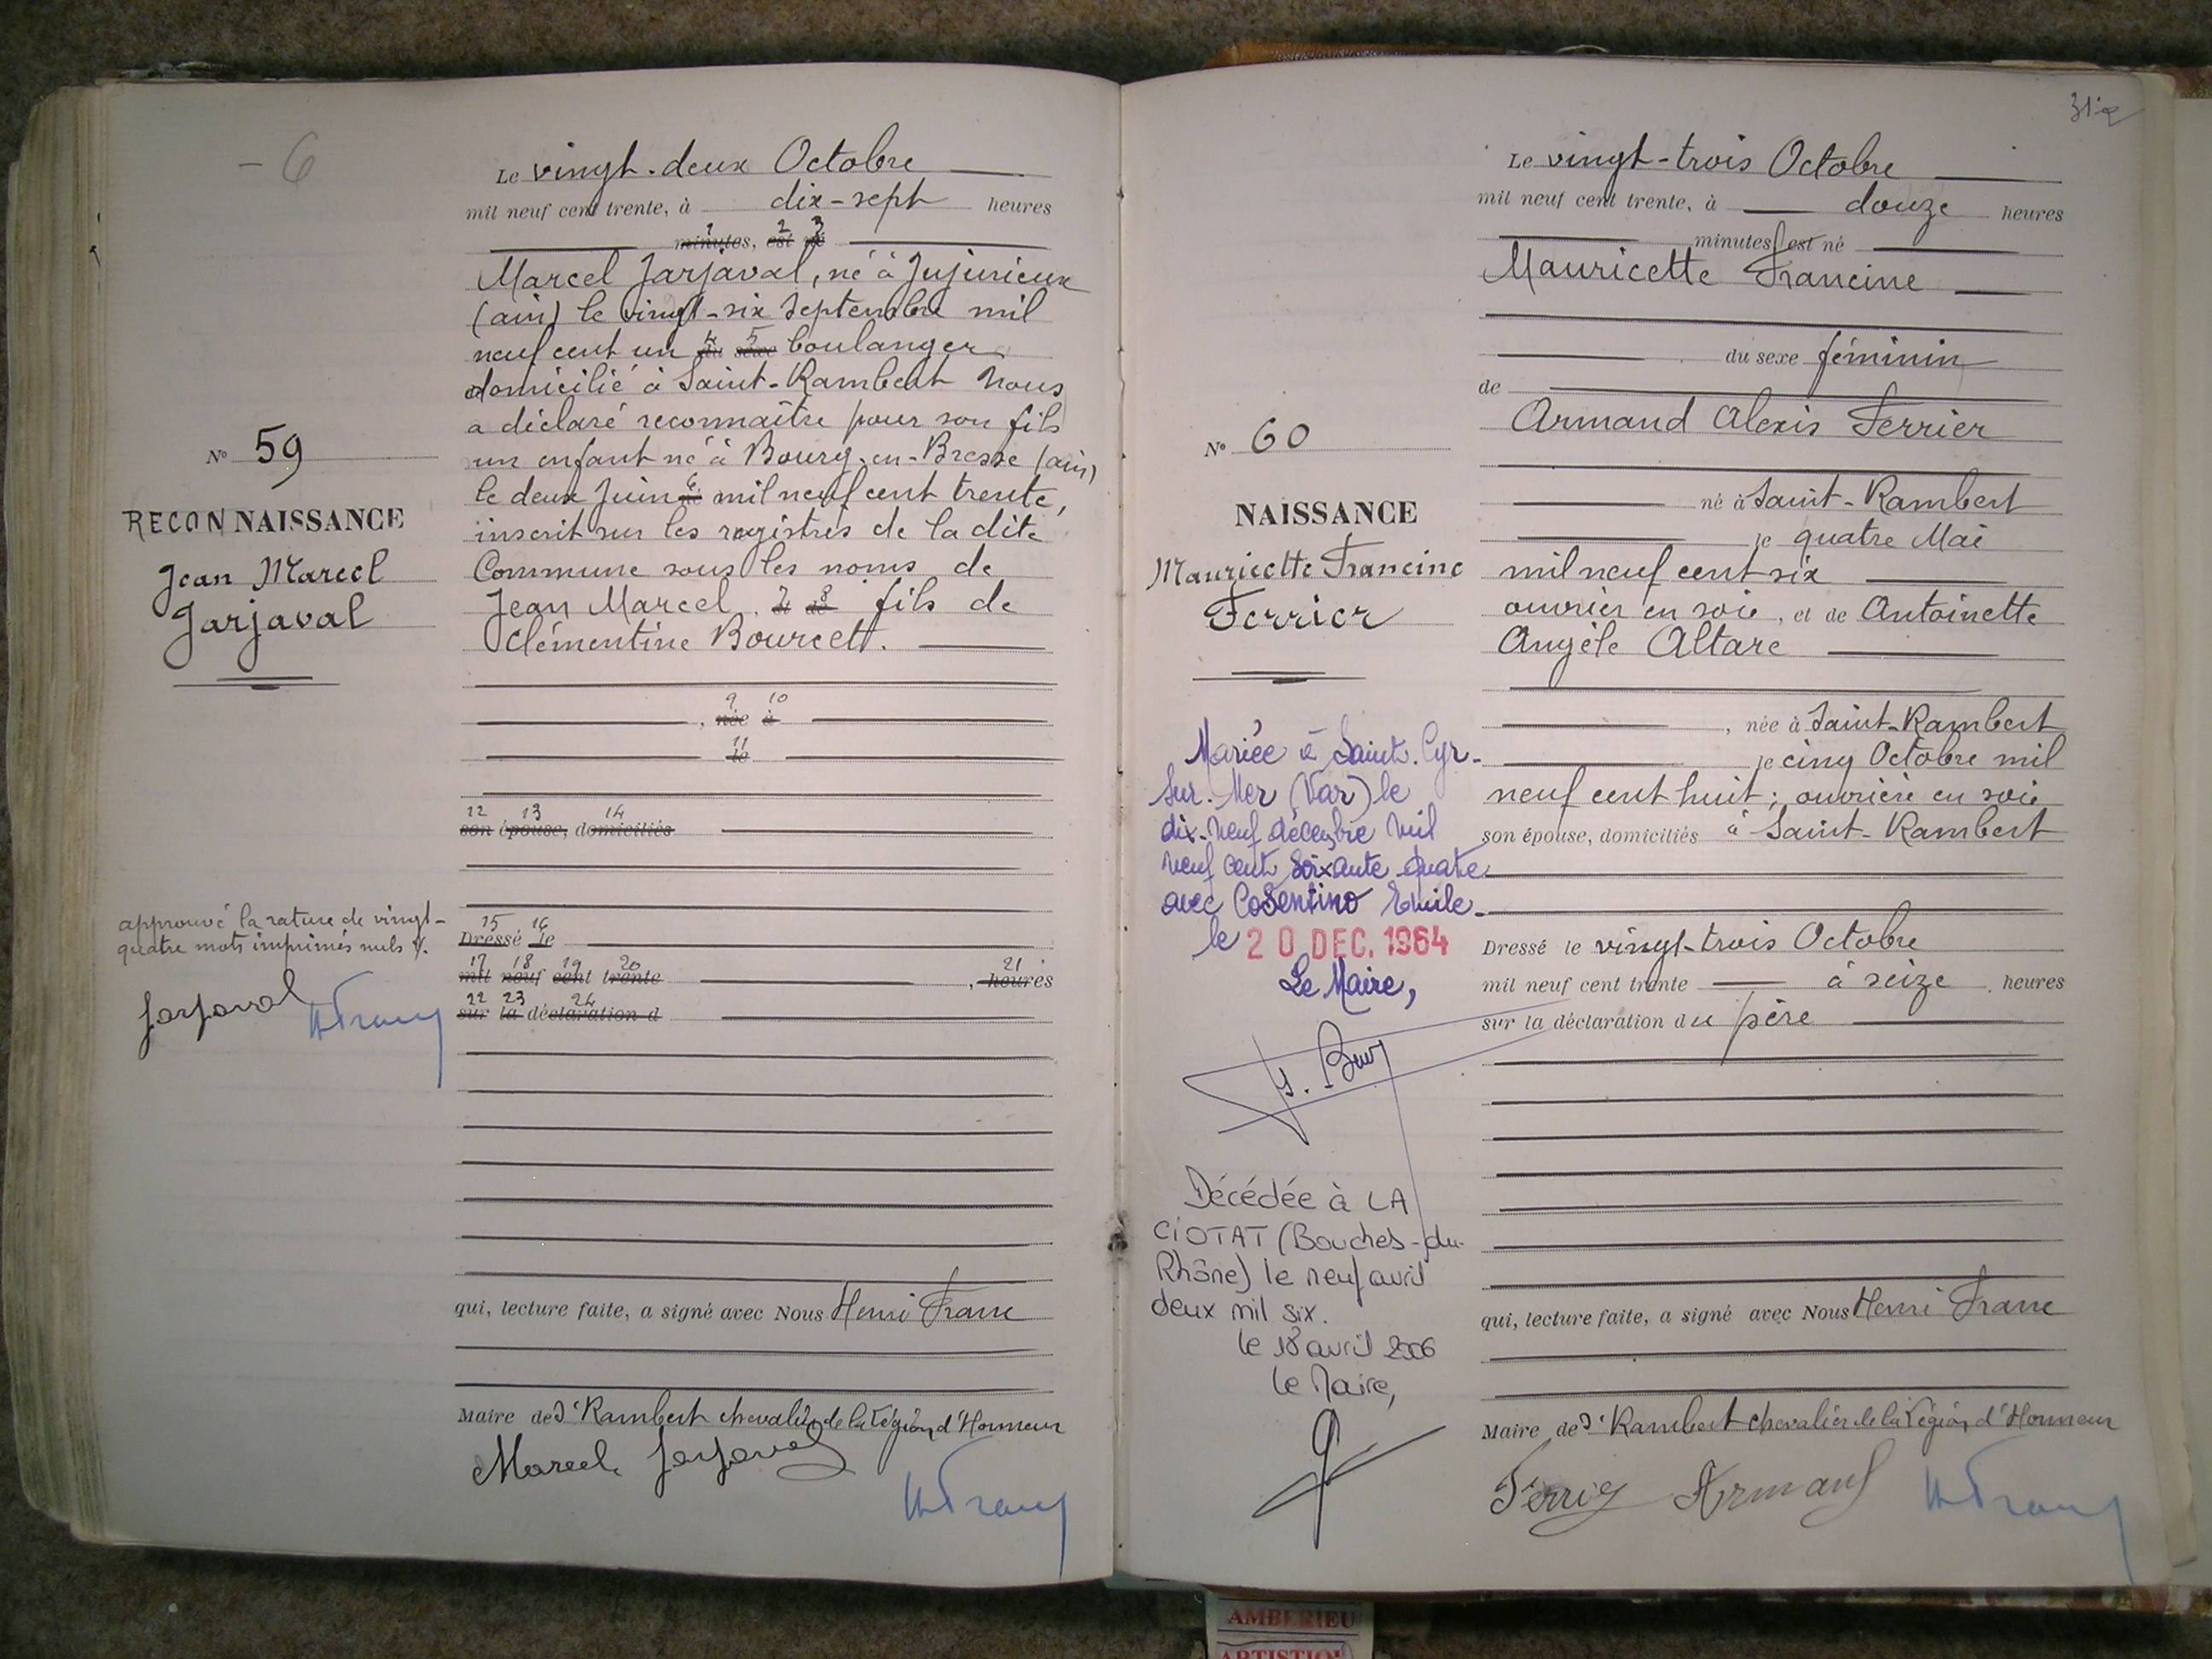 - 6
Le vingt-deux Octobre
mil neuf cent trente, à dix-sept heures
1 2 3
minutes, est né
Marcel Jarjaval, né à Jujurieux
(ain) le vingt-six Septembre mil
neuf cent un 4 du 5 sexe boulanger
domicilié à Saint-Rambert Nous
a déclaré reconnaître pour son fils
un enfant né à Bourg-en-Bresse (ain)
le deux Juin 6 mil neuf cent trente,
inscrit sur les registres de la dite
Commune sous les noms de
Jean Marcel 7 8 fils de
Clémentine Bourcett.
9 10
, née à
11
le
12 13 14
son épouse, domiciliés
15 16
Dressé le
17 18 19 20 21
mil neuf cent trente , heures
22 23 24
sur la déclaration d
qui, lecture faite, a signé avec Nous Henri Franc
Maire de St Rambert chevalier de la Légion d'Honneur
Marcel Jarjaval
H Franc
N° 59
RECONNAISSANCE
Jean Marcel
Jarjaval
approuvé la rature de vingt-
quatre mots imprimés nuls
Jarjaval H Franc
Le vingt-trois Octobre
mil neuf cent trente, à douze heures
minutes est né
Mauricette Francine
du sexe féminin
de
Armand Alexis Ferrier
né à Saint-Rambert
le quatre Mai
mil neuf cent six
ouvrier en soie, et de Antoinette
Angèle Altare
, née à Saint-Rambert
le cinq Octobre mil
neuf cent huit ; ouvrière en soie
son épouse, domiciliés à Saint-Rambert
Dressé le vingt-trois Octobre
mil neuf cent trente à seize heures
sur la déclaration du père
qui, lecture faite, a signé avec Nous Henri Franc
Maire de St Rambert chevalier de la Légion d'Honneur
Ferrier Armand H Franc
N° 60
NAISSANCE
Mauricette Francine
Ferrier
Mariée à Saint-Cyr-
sur-Mer (Var) le
dix-neuf décembre mil
neuf cent soixante quatre
avec Cosentino Emile
le 20 DEC. 1964
Le Maire,
Décédée à LA
CIOTAT (Bouches-du-
Rhône) le neuf avril
deux mil six.
le 18 avril 2006
le Maire,
AMBERIEU